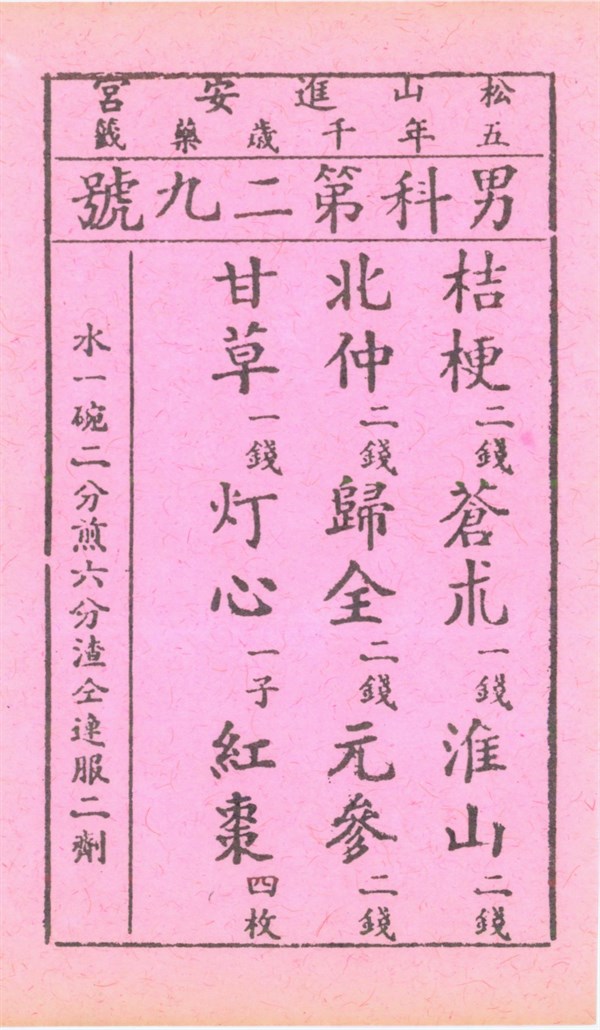 松山進安宮
五年千歲藥籤
男科第二九號
桔梗二錢蒼朮一錢淮山二錢
北仲二錢歸全二錢元參二錢
甘草一錢灯心一子紅棗四枚
水一碗二分煎六分渣仝連服二劑